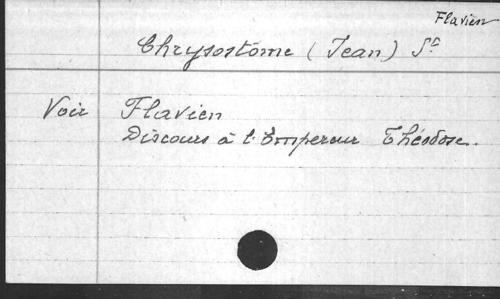 Flavien
Chrysostôme (Jean) St
Voir Flavien
Discours à l'Empereur Théodose.